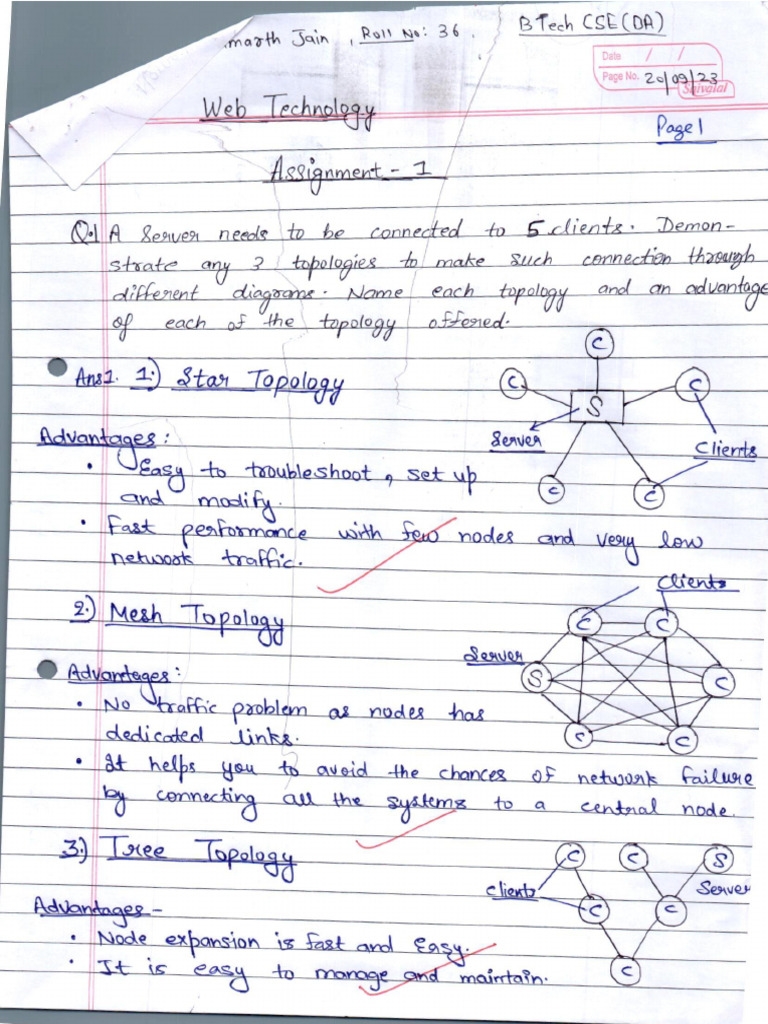 marth Jain, Roll No: 36. BTech CSE(DA)
Date / /
Page No. 20/09/23
Shivalal
Web Technology
Page 1
Assignment - 1
Q.1 A Server needs to be connected to 5 clients. Demon-
strate any 3 topologies to make such connection through
different diagrams. Name each topology and an advantage
of each of the topology offered.
C
Ans1. 1.) Star Topology
C
C
S
Server
Clients
Advantages:
C
C
• Easy to troubleshoot, set up
and modify.
• Fast performance with few nodes and very low
network traffic.
Clients
2.) Mesh Topology
C
C
Server
S
C
Advantages:
• No traffic problem as nodes has
dedicated links.
C
• It helps you to avoid the chances of network failure
by connecting all the systems to a central node.
3.) Tree Topology
C
C
S
Clients
Server
C
C
Advantages -
• Node expansion is fast and Easy.
• It is easy to manage and maintain.
C